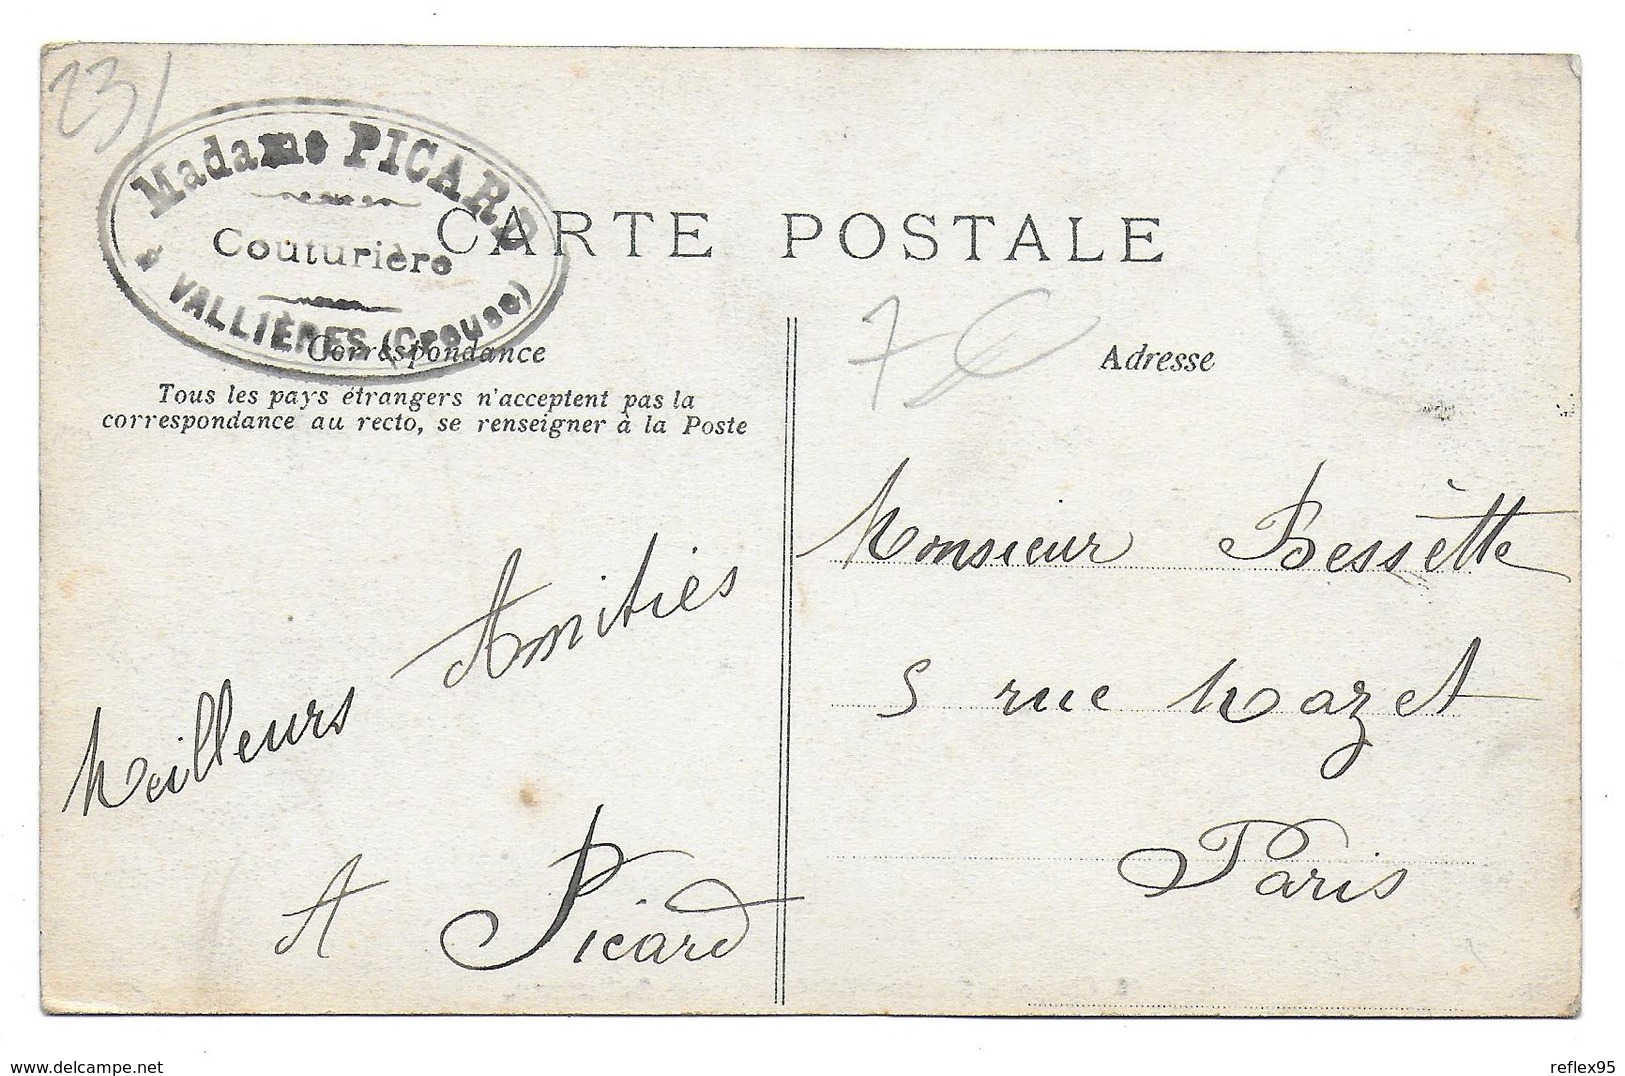 23/
Madame PICARD
Couturière
à VALLIÈRES (Creuse)
CARTE POSTALE
Correspondance
Tous les pays étrangers n'acceptent pas la
correspondance au recto, se renseigner à la Poste
Meilleurs Amitiés
A Picard
7-
Adresse
Monsieur Bessètte
5 rue Mazet
Paris
www.delcampe.net
reflex95